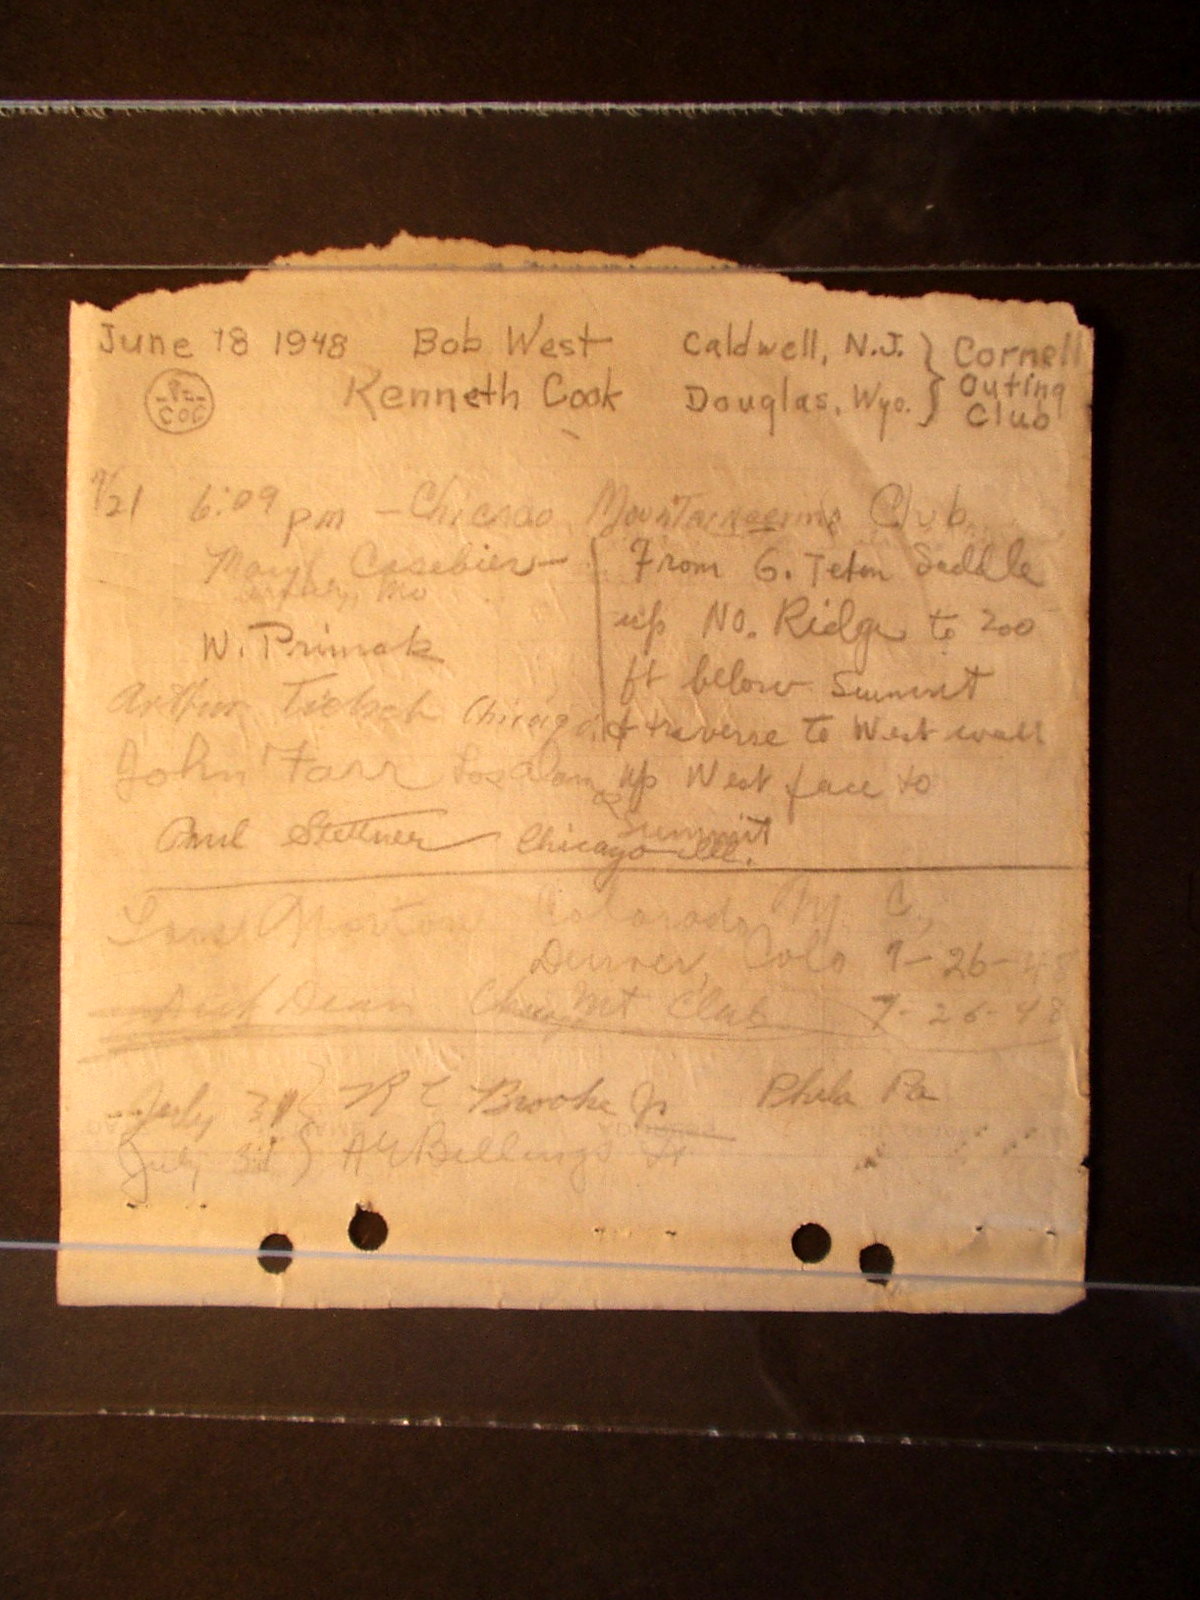 June 18 1948 Bob West Caldwell, N.J. } Cornell
Kenneth Cook Douglas, Wyo. } Outing
Club
COC
7/21 6:09 pm - Chicago Mountaineering Club
Mary Casebier
Mo
W. Primak
Arthur Chicago
John Farr Los Alamos
Paul Stettner Chicago Ill.
From G. Teton Saddle
up No. Ridge to 200
ft below Summit
& traverse to West wall
up West face to
Summit
Morton Colorado M. C.,
Denver, Colo 7-26-48
Dick Dean Chicago Mt Club 7-26-48
July 31 } R C Brooke Jr Phila Pa
July 31 } Billings Jr